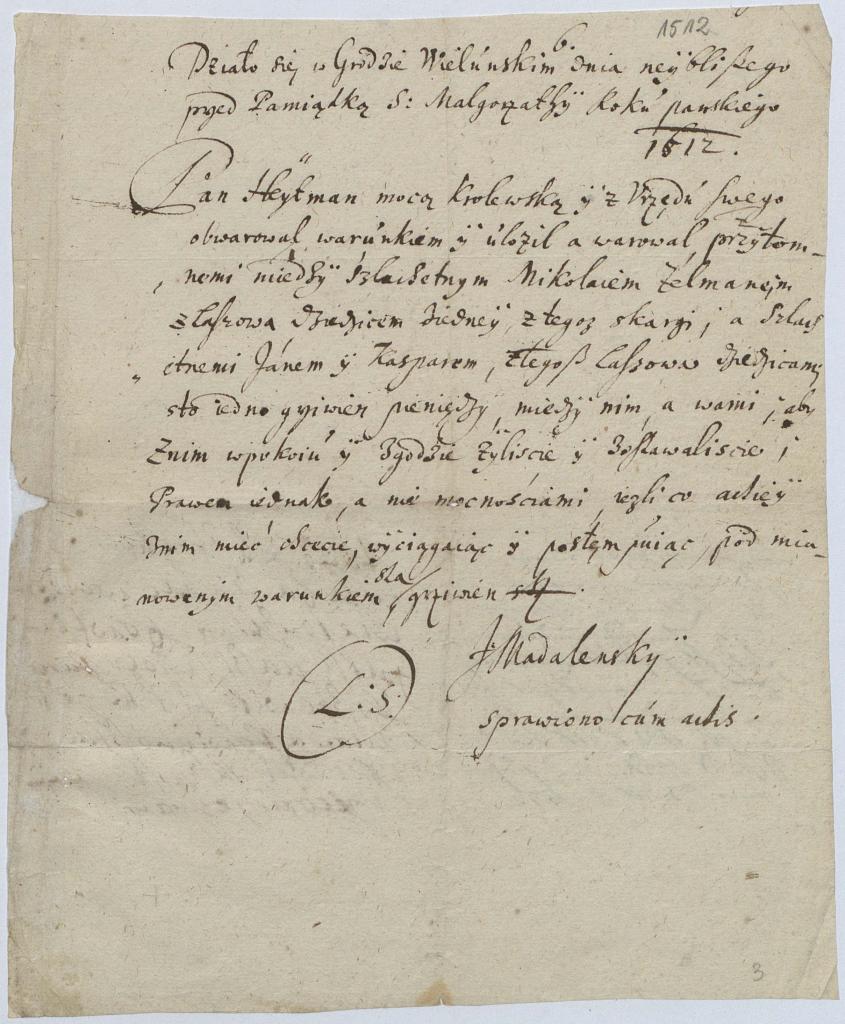 1512
Działo się w Grodzie Wielúnskim 6. dnia neÿbliszego
przed Pamiątką S: Małgorzathÿ Rokú panskiego
1512.
Pan Heÿtman mocą Krolewską ÿ z Vrzędú swego
obwarował warúnkiem ÿ úlozil a warował przytom-
nemi międzÿ szlachetnym Mikolaiem
z Laszowa dziedzicem biedneÿ, z tegoz skargi; a Szlach
etnemi Jánem ÿ Kasparem, ztegosz Laszowa dziedzicami
sto iedno grziwien pieniędzy, miedzÿ nim, a wami; aby
Znim wpokoiú ÿ Zgodzie Zÿliscie ÿ Zostawaliscie;
Prawem iednak, a nie mocnościami, iezli co actięÿ
Znim mieć chcecie, wÿciągaiąc ÿ postęmpúiąc, pod mia-
nowanÿm warunkiem sta grziwien
J: Madalenskÿ
L: S:
sprawiono cúm actis.
3